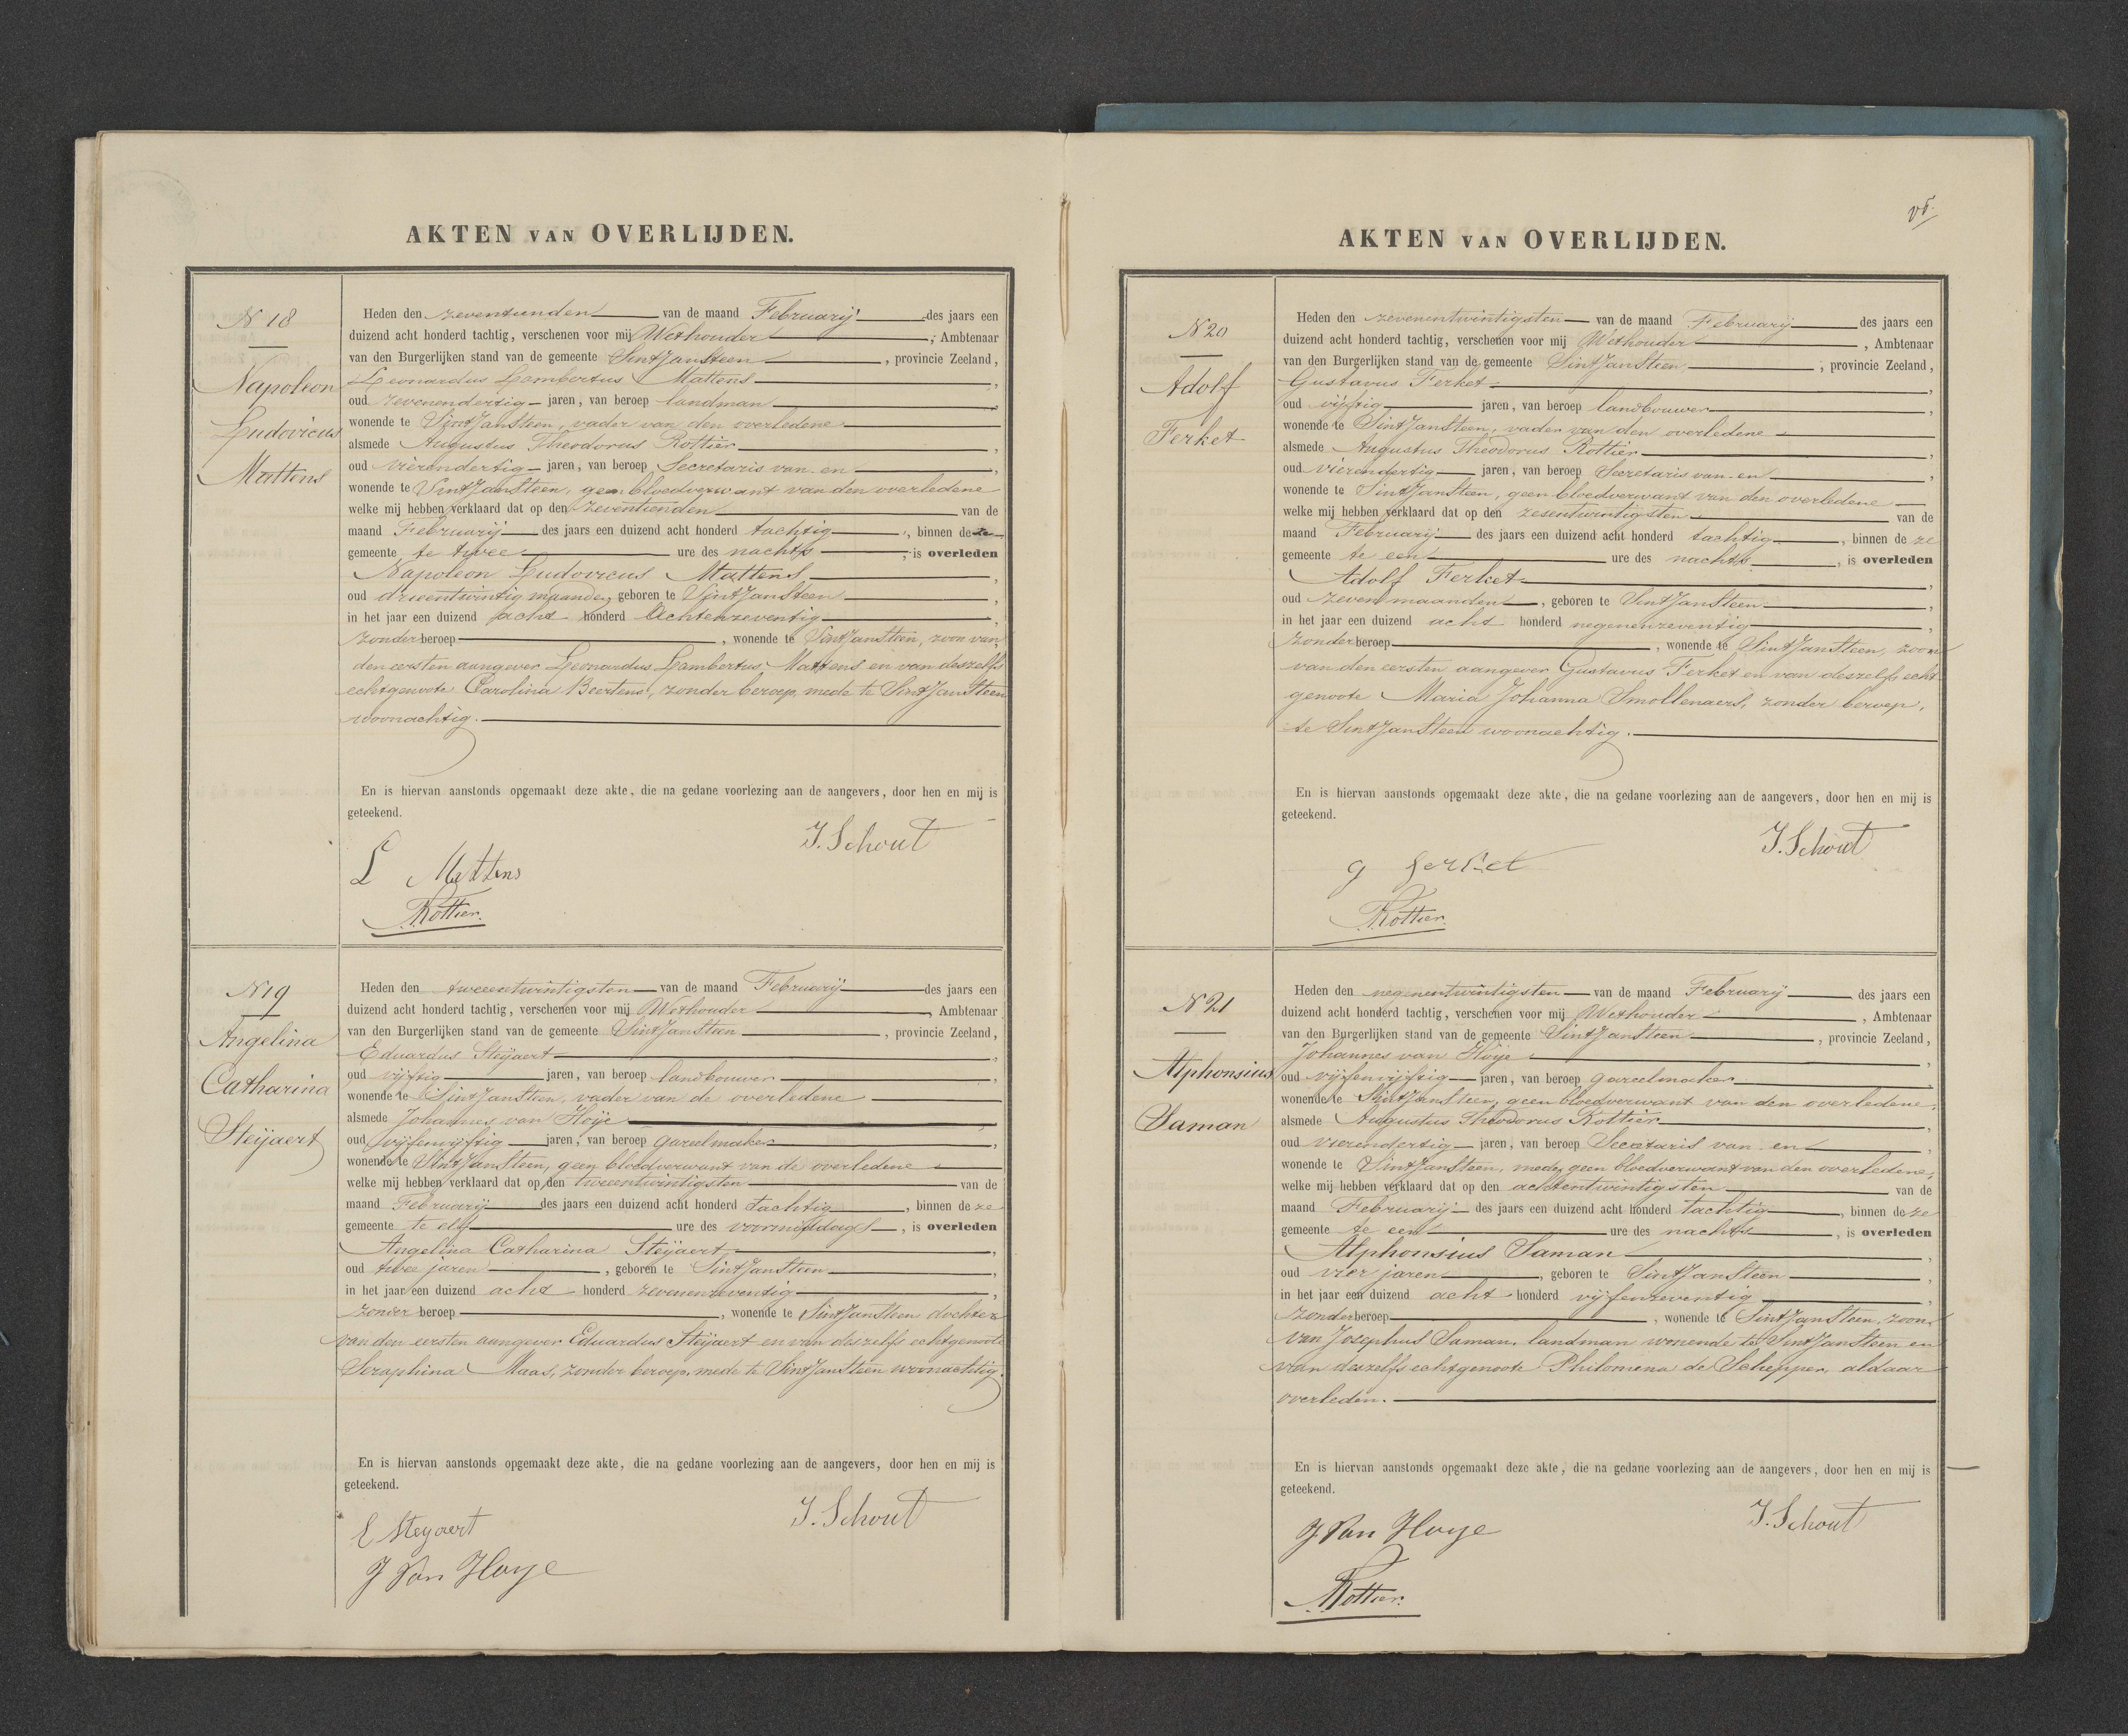 AKTEN VAN OVERLIJDEN.
N 18
Napoleon
Ludovicus
Mattens
Heden den zeventienden van de maand Februarij des jaars een
duizend acht honderd tachtig, verschenen voor mij Wethouder, Ambtenaar
van den Burgerlijken stand van de gemeente Sint Jansteen, provincie Zeeland,
Leonardus Lambertus Mattens,
oud zevenendertig jaren, van beroep landman,
wonende te Sint Jansteen, vader van den overledene
alsmede Augustus Theodorus Rottier,
oud vierendertig jaren, van beroep Secretaris van en,
wonende te Sint Jansteen, geen bloedverwant van den overledene
welke mij hebben verklaard dat op den zeventienden van de
maand Februarij des jaars een duizend acht honderd tachtig, binnen deze
gemeente te twee ure des nachts, is overleden
Napoleon Ludovicus Mattens,
oud drieentwintig maanden, geboren te Sint Jansteen,
in het jaar een duizend acht honderd Achtenzeventig,
zonder beroep, wonende te Sint Jansteen, zoon van
den eersten aangever Leonardus Lambertus Mattens en van deszelfs
echtgenoote Carolina Beertens, zonder beroep, mede te Sint Jansteen
woonachtig.
En is hiervan aanstonds opgemaakt deze akte, die na gedane voorlezing aan de aangevers, door hen en mij is
geteekend.
J. Schout
L Mattens
Rottier.
N 19
Angelina
Catharina
Steijaert
Heden den tweeentwintigsten van de maand Februarij des jaars een
duizend acht honderd tachtig, verschenen voor mij Wethouder, Ambtenaar
van den Burgerlijken stand van de gemeente Sint Jansteen, provincie Zeeland,
Eduardus Steijaert,
oud vijftig jaren, van beroep landbouwer,
wonende te Sint Jansteen, vader van de overledene
alsmede Johannes van Hoije,
oud vijfenvijftig jaren, van beroep gareelmaker,
wonende te Sint Jansteen, geen bloedverwant van de overledene
welke mij hebben verklaard dat op den tweeentwintigsten van de
maand Februarij des jaars een duizend acht honderd tachtig, binnen deze
gemeente te elf ure des voormiddags, is overleden
Angelina Catharina Steijaert,
oud twee jaren, geboren te Sint Jansteen,
in het jaar een duizend acht honderd zevenenzeventig,
zonder beroep, wonende te Sint Jansteen dochter
van den eersten aangever Eduardus Steijaert en van deszelfs echtgenoote
Seraphina Maas, zonder beroep, mede te Sint Jansteen woonachtig.
En is hiervan aanstonds opgemaakt deze akte, die na gedane voorlezing aan de aangevers, door hen en mij is
geteekend.
J. Schout
E Steyaert
J Van Hoye
AKTEN VAN OVERLIJDEN.
N 20
Adolf
Ferket
Heden den zevenentwintigsten van de maand Februarij des jaars een
duizend acht honderd tachtig, verschenen voor mij Wethouder, Ambtenaar
van den Burgerlijken stand van de gemeente Sint Jansteen, provincie Zeeland,
Gustavus Ferket,
oud vijftig jaren, van beroep landbouwer,
wonende te Sint Jansteen, vader van den overledene
alsmede Augustus Theodorus Rottier,
oud vierendertig jaren, van beroep Secretaris van en,
wonende te Sint Jansteen, geen bloedverwant van den overledene
welke mij hebben verklaard dat op den zesentwintigsten van de
maand Februarij des jaars een duizend acht honderd tachtig, binnen deze
gemeente te een ure des nachts, is overleden
Adolf Ferket,
oud zeven maanden, geboren te Sint Jansteen,
in het jaar een duizend acht honderd negenenzeventig,
zonder beroep, wonende te Sint Jansteen, zoon
van den eersten aangever Gustavus Ferket en van deszelfs echt
genoote Maria Johanna Smollenaers, zonder beroep,
te Sint Jansteen woonachtig.
En is hiervan aanstonds opgemaakt deze akte, die na gedane voorlezing aan de aangevers, door hen en mij is
geteekend.
J. Schout
g ferket
Rottier.
N 21
Alphonsius
Saman
Heden den negenentwintigsten van de maand Februarij des jaars een
duizend acht honderd tachtig, verschenen voor mij Wethouder, Ambtenaar
van den Burgerlijken stand van de gemeente Sint Jansteen, provincie Zeeland,
Johannes van Hoije,
oud vijfenvijftig jaren, van beroep gareelmaker,
wonende te Sint Jansteen, geen bloedverwant van den overledene,
alsmede Augustus Theodorus Rottier,
oud vierendertig jaren, van beroep Secretaris van en,
wonende te Sint Jansteen, mede geen bloedverwant van den overledene,
welke mij hebben verklaard dat op den achtentwintigsten van de
maand Februarij des jaars een duizend acht honderd tachtig, binnen deze
gemeente te een ure des nachts, is overleden
Alphonsius Saman,
oud vier jaren, geboren te Sint Jansteen,
in het jaar een duizend acht honderd vijfenzeventig,
zonder beroep, wonende te Sint Jansteen, zoon
van Josephus Saman, landman wonende te Sint Jansteen en
van deszelfs echtgenoote Philomena de Schepper, aldaar
overleden.
En is hiervan aanstonds opgemaakt deze akte, die na gedane voorlezing aan de aangevers, door hen en mij is
geteekend.
J. Schout
J. Van Hoye
Rottier.